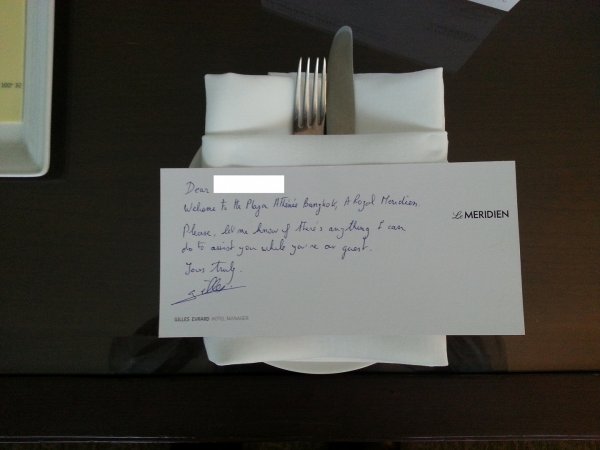 Dear
Welcome to the Plaza Athénée Bangkok, A Royal Meridien
Please, let me know if there's anything I can
do to assist you while you're our guest.
Yours truly.
Gilles
Le MERIDIEN
GILLES CURARD HOTEL MANAGER
100° 32